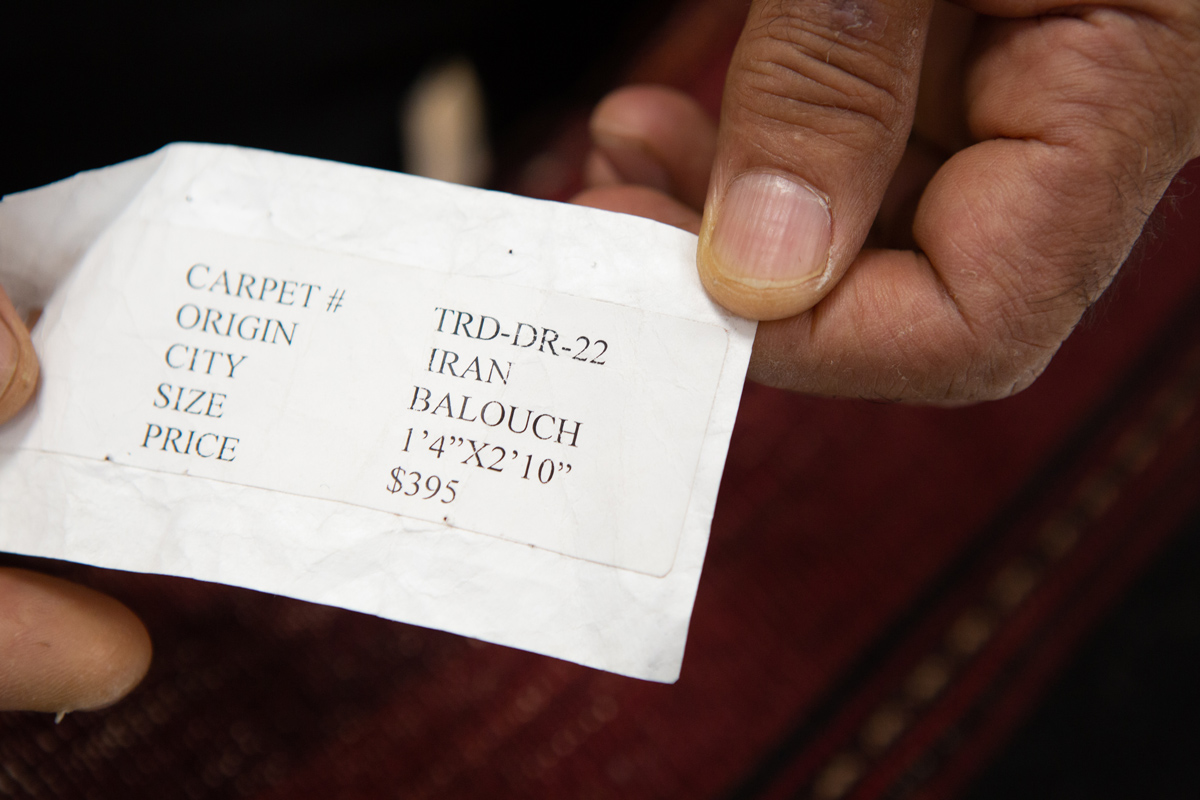 CARPET # TRD-DR-22
ORIGIN IRAN
CITY BALOUCH
SIZE 1'4"X2'10"
PRICE $395